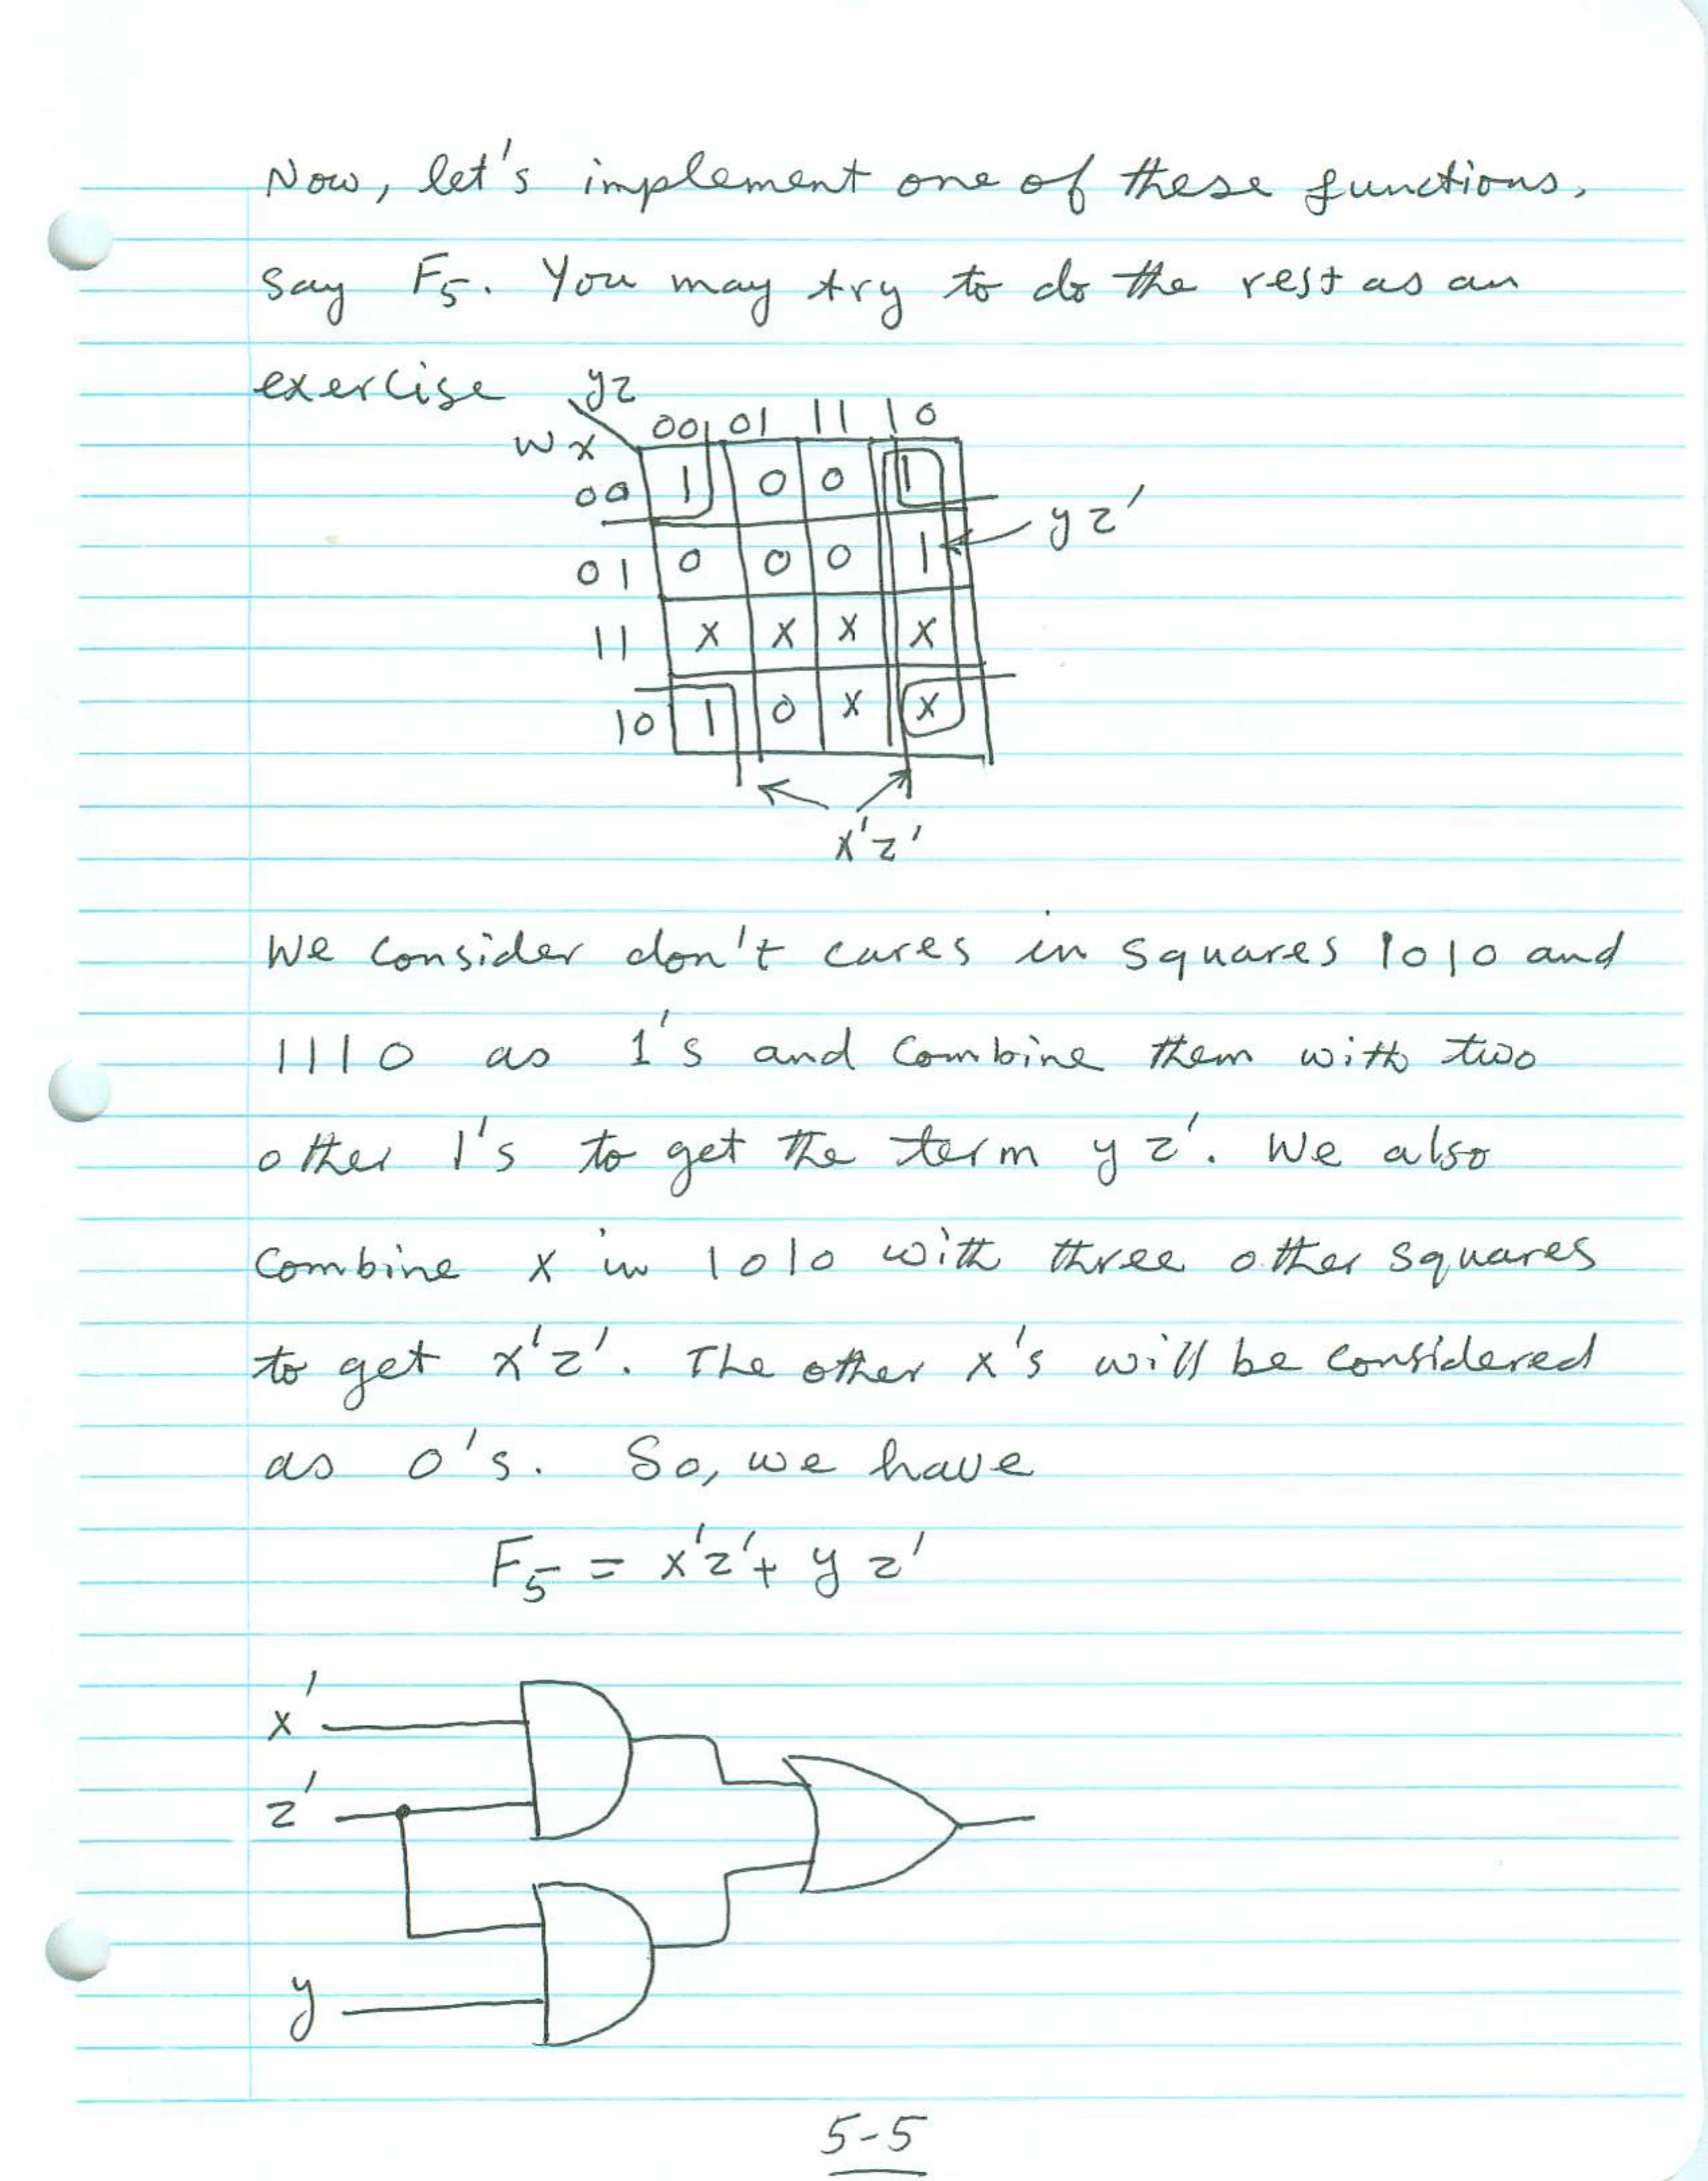 Now, let's implement one of these functions,
say F5. You may try to do the rest as an
exercise
yz
wx 00 01 11 10
00 1 0 0 1
yz'
01 0 0 0 1
11 x x x x
10 1 0 x x
x'z'
We consider don't cares in squares 1010 and
1110 as 1's and combine them with two
other 1's to get the term yz'. We also
combine x in 1010 with three other squares
to get x'z'. The other x's will be considered
as 0's. So, we have
F5 = x'z' + yz'
x'
z'
y
5-5